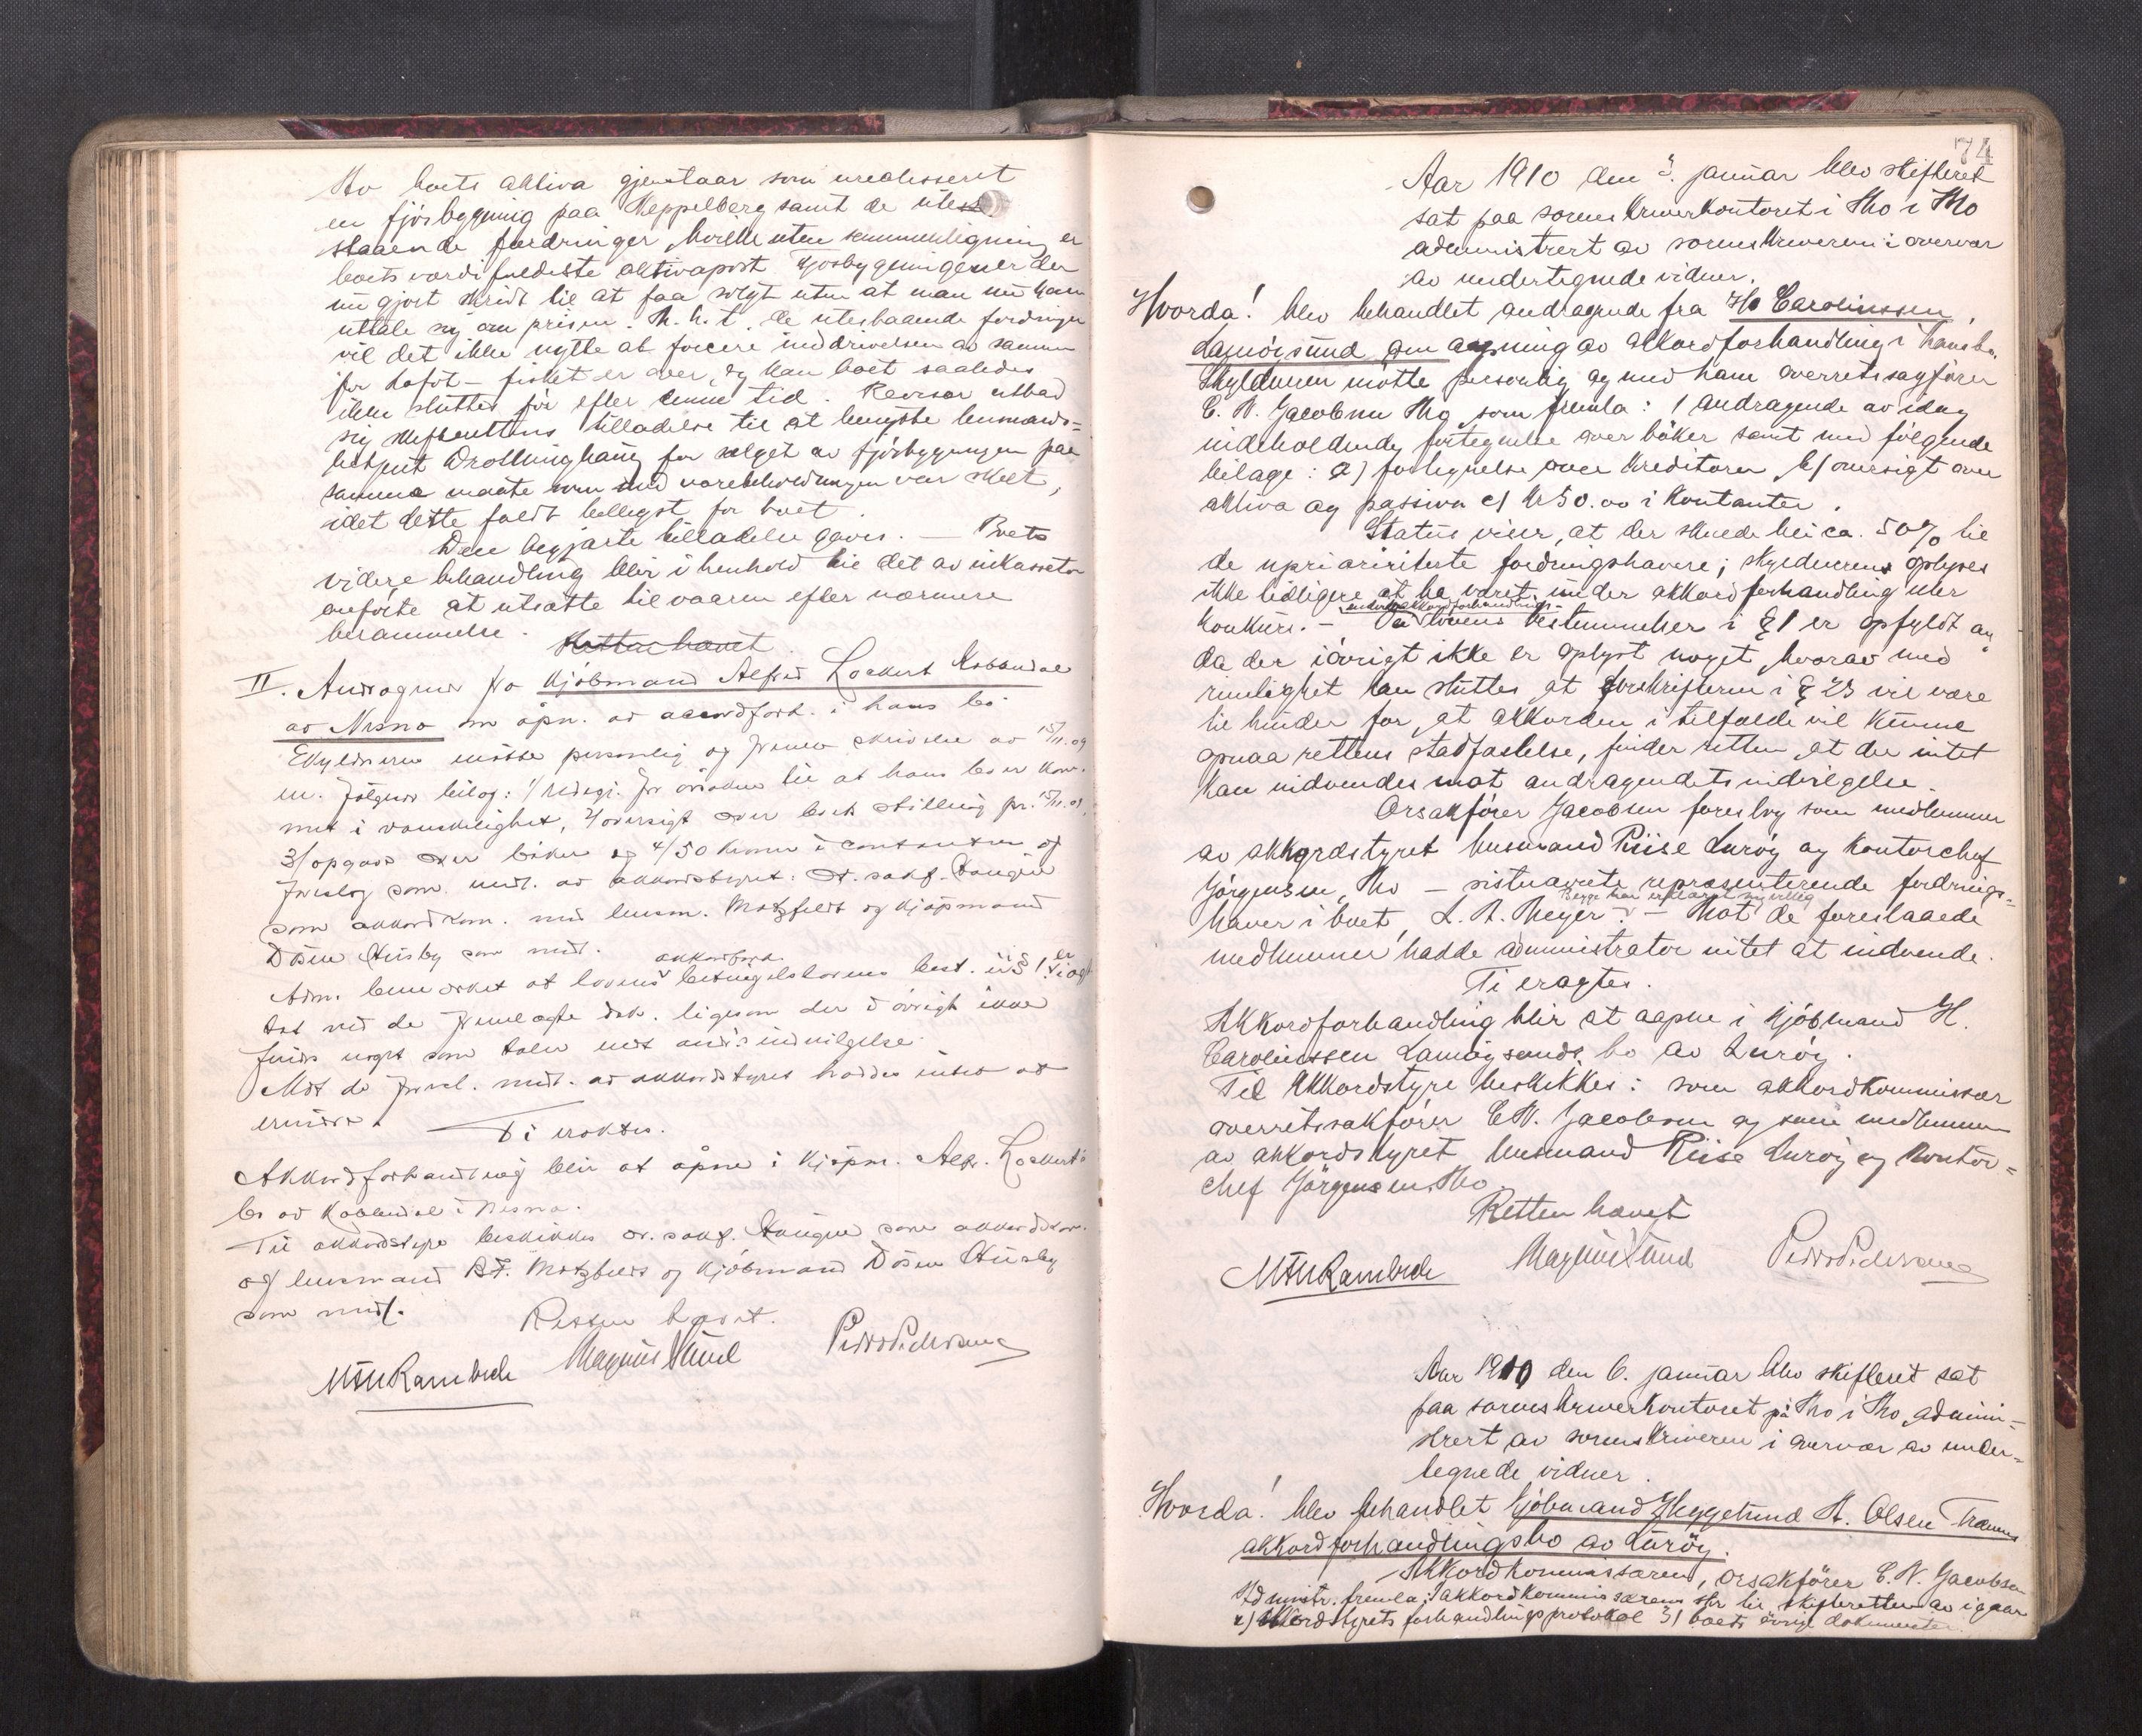 Av boets aktiva gjenstaar som urealisseret
en fjösbygning paa Heppelberg samt de ute-
staaende fordringer, hvilke uten sammenligning er
boets værdifuldeste aktivapost. Fjösbygningen er der
nu gjort skridt til at faa solgt uten at man nu kan
uttale sig om prisen. M.h.t. de utestaaende fordringer
vil det ikke nytte at forcere inddrivelsen av samme
för Lofot-fisket er over, og kan boet saaledes
ikke sluttes för efter denne tid. Revisor utbad
sig skifterettens tilladelse til at benytte lensmands-
betjent Drottninghaug for salget av fjösbygningen paa
samme maate som ved varebeholdningen var skeet,
idet dette faldt billigst for boet.
Den begjærte tilladelse gaves. — Boets
videre behandling blir i henhold til det av inkassator
anförte at utsætte til vaaren efter nærmere
berammelse.
Retten hævet.
II. Andragende fra Kjöbmand Alfred Lockert Kobberdal
av Nesna om åpn. av accordforh. i hans bo
Skyldneren mötte personlig og fremla skrivelse av 15/11.09
m. fölgende bilag: 1/ redegj. for årsaken til at hans bo er kom-
met i vanskelighet, 2/ oversigt over boets stilling pr. 15/11.09,
3/ opgave over böker og 4/ 50 kroner i contanter og
foreslog som medl. av akkordstyret: O. sakf. Haugen
som akkordkom. med lensm. Motzfeldt og kjöpmand
Dösen Husby som medl.
akkordforh.
Adm. bemerket at lovens betingelsers best. i § 1 er iagt-
tat ved de fremlagte dok. ligesom der i övrigt ikke
findes noget som taler mot andr. indvilgelse.
Mot de foresl. medl. av akkordstyret haddes intet at
erindre.
Ti eraktes.
Akkordforhandling blir at åpne i kjöpm. Alfr. Lockert's
bo av Kobberdal i Nesna.
Til akkordstyre beskikkes or. sakf. Haugen som akkordkom.
og lensmand Motzfeldt og kjöbmand Dösen Husby
som medl.
Retten hævet.
Magnus Lund
Peder Pedersen
74
Aar 1910 den 3. januar blev skifteret
sat paa sorenskriverkontoret i Mo i Mo
administrert av sorenskriveren i overvær
av undertegnede vidner.
Hvorda! blev behandlet andragende fra H. Carolinssen,
Lamöysund om aapning av akkordforhandling i hans bo.
Skyldneren mötte personlig og med ham overretssagförer
C. N. Jacobsen Mo, som fremla: 1 andragende av idag
indeholdende fortegnelse over böker samt med fölgende
bilage: a) fortegnelse over kreditorer, b) oversigt over
aktiva og passiva c) kr 50.00 i kontanter.
Status viser, at der skulde bli ca. 50% til
de upriioriterte fordringshavere; skyldneren oplyses
ikke tidligere at ha været under akkordforhandling eller
akkordforhandlings-
konkurs. — Da lovens bestemmelser i § 1 er opfyldt og
da der iövrigt ikke er oplyst noget, hvorav med
rimelighet kan sluttes, at forskrifterne i § 23 vil være
til hinder for, at akkorden i tilfælde vil kunne
opnaa rettens stadfæstelse, finder retten, at der intet
kan indvendes mot andragendets indvilgelse.
Orsakförer Jacobsen foreslog som medlemmer
av akkordstyret lensmand Riise Luröy og kontorchef
Jörgensen, Mo — sistnævnte repræsenterende fordrings-
Begge har erklært sig villig
haver i boet, L. A. Meyer —. — Mot de foreslaaede
medlemmer hadde administrator intet at indvende.
Ti eragtes.
Akkordforhandling blir at aapne i kjöbmand H.
Carolinssen Lamöysunds bo av Luröy.
Til Akkordstyre beskikkes: som akkordkommissær
overretssakförer C. N. Jacobsen og som medlemmer
av akkordstyret lensmand Riise Luröy og kontor-
chef Jörgensen, Mo.
Retten hævet
Magnus Lund
Peder Pedersen
Aar 1910 den 6. januar blev skifteret sat
paa sorenskriverkontoret på Mo i Mo, admini-
strert av sorenskriveren i overvær av under-
tegnede vidner.
Hvorda! blev behandlet kjöbmand Hyggelund A. Olsen Trænens
akkordforhandlingsbo av Luröy.
Akkordkommissæren, orsakförer C. N. Jacobsen
Administr. fremla: 1 akkordkommissærens skr til skifteretten av igaar
2) Akkordstyrets forhandlingsprotokol 3) boets övrige dokumenter.